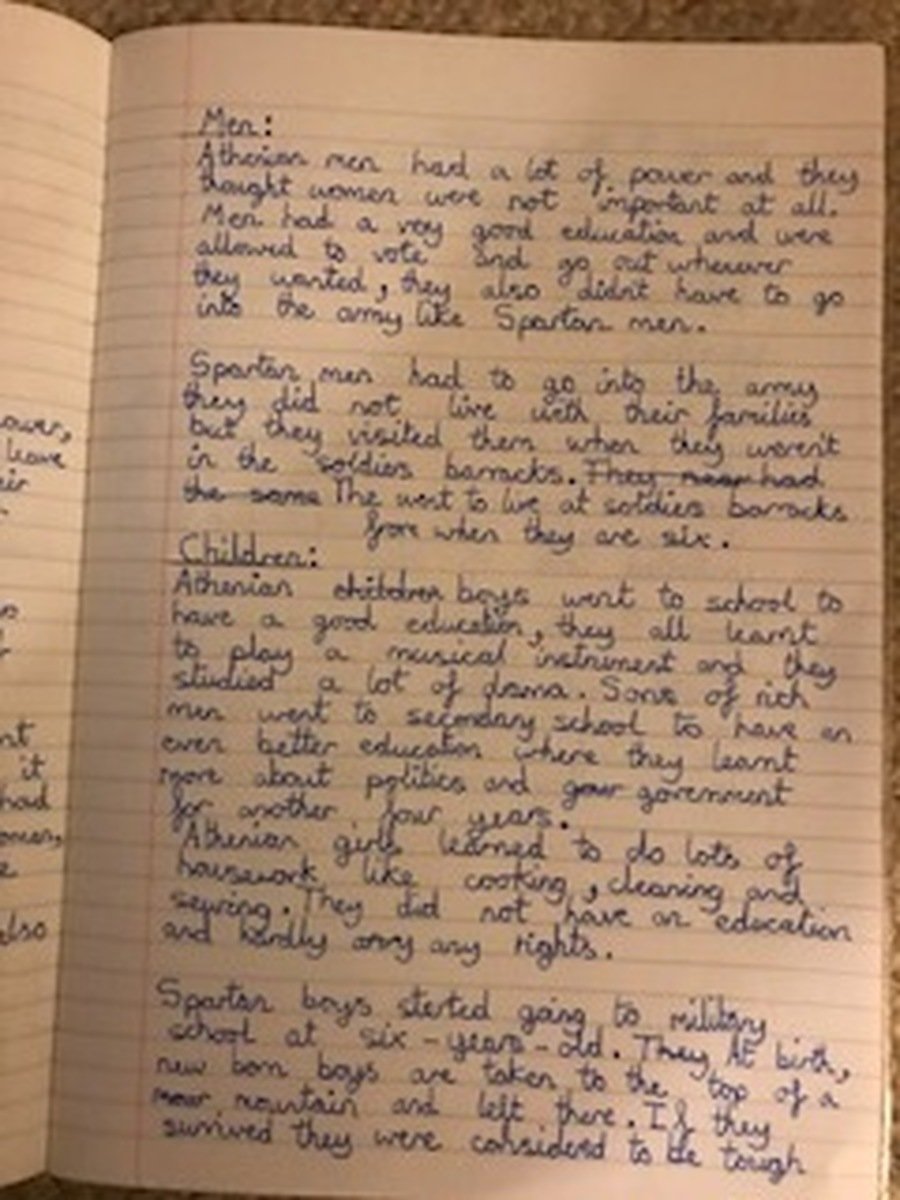 ower,
leave
eir
nt
it
had
omen,
e
also
Men:
Athenian men had a lot of power and they
thought women were not important at all.
Men had a very good education and were
allowed to vote and go out wherever
they wanted, they also didn't have to go
into the army like Spartan men.
Spartan men had to go into the army
they did not live with their families
but they visited them when they weren't
in the soldiers barracks. They near had
the same The went to live at soldiers barracks
from when they are six.
Children:
Athenian children boys went to school to
have a good education, they all learnt
to play a musical instrument and they
studied a lot of drama. Sons of rich
men went to secondary school to have an
even better education where they learnt
more about politics and gour government
for another four years.
Athenian girls learned to do lots of
housework like cooking, cleaning and
sewing. They did not have an education
and hardly any rights.
Spartan boys started going to military
school at six-years-old. They At birth,
new born boys are taken to the top of a
mountain and left there. If they
survived they were considered to be tough